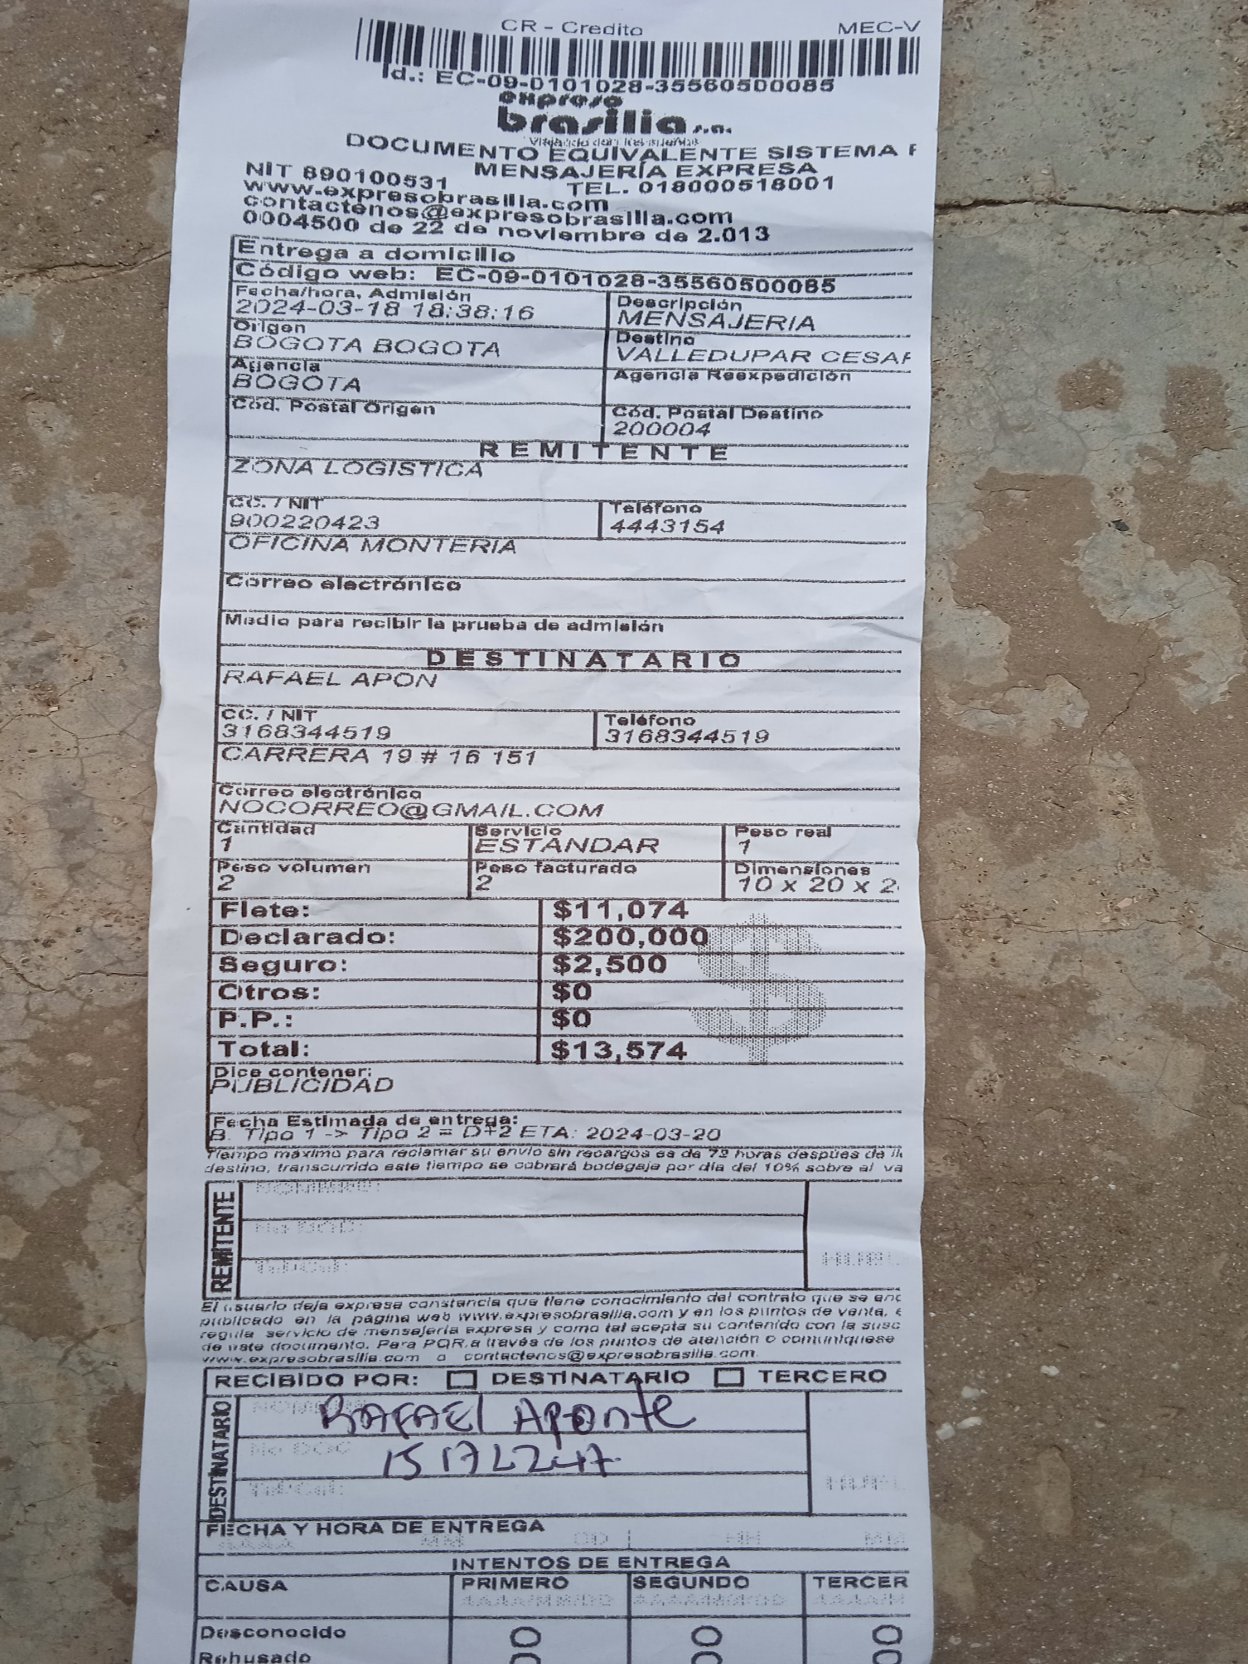 CR - Credito MEC-V
Id.: EC-09-0101028-35560500085
expreso
brasilia s.a.
DOCUMENTO EQUIVALENTE SISTEMA
MENSAJERÍA EXPRESA
NIT 890100531 TEL. 018000518001
www.expresobrasilia.com
contactenos@expresobrasilia.com
0004500 de 22 de noviembre de 2.013
Entrega a domicilio
Código web: EC-09-0101028-35560500085
Fecha/hora. Admisión Descripción
2024-03-18 18:38:16 MENSAJERIA
Origen Destino
BOGOTA BOGOTA VALLEDUPAR CESAR
Agencia Agencia Reexpedición
BOGOTA
Cód. Postal Origen Cód. Postal Destino
200004
REMITENTE
ZONA LOGISTICA
CC. / NIT Teléfono
900220423 4443154
OFICINA MONTERIA
Correo electrónico
Medio para recibir la prueba de admisión
DESTINATARIO
RAFAEL APON
CC. / NIT Teléfono
3168344519 3168344519
CARRERA 19 # 16 151
Correo electrónico
NOCORREO@GMAIL.COM
Cantidad Servicio Peso real
1 ESTANDAR 1
Peso volumen Peso facturado Dimensiones
2 2 10 x 20 x 2
Flete: $11,074
Declarado: $200,000
Seguro: $2,500
Otros: $0
P.P.: $0
Total: $13,574
Dice contener:
PUBLICIDAD
Fecha Estimada de entrega:
B. Tipo 1 -> Tipo 2 = D+2 ETA: 2024-03-20
Tiempo máximo para reclamar su envío sin recargos es de 72 horas después de
destino, transcurrido este tiempo se cobrará bodegaje por día del 10% sobre el va
REMITENTE
NOMBRE:
No DOC:
Tel/Cel:
El usuario deja expresa constancia que tiene conocimiento del contrato que se enc
publicado en la página web www.expresobrasilia.com y en los puntos de venta,
regula servicio de mensajería expresa y como tal acepta su contenido con la susc
de este documento. Para PQR a través de los puntos de atención o comuníquese
www.expresobrasilia.com o contactenos@expresobrasilia.com.
RECIBIDO POR: DESTINATARIO TERCERO
DESTINATARIO
NOMBRE
RAFAEl Aponte
No DOC
Tel/Cel:
FECHA Y HORA DE ENTREGA
AAAA MM DD HH MM
INTENTOS DE ENTREGA
CAUSA PRIMERO SEGUNDO TERCER
AAAA/MM/DD AAAA/MM/DD AAAA/M
Desconocido
Rehusado